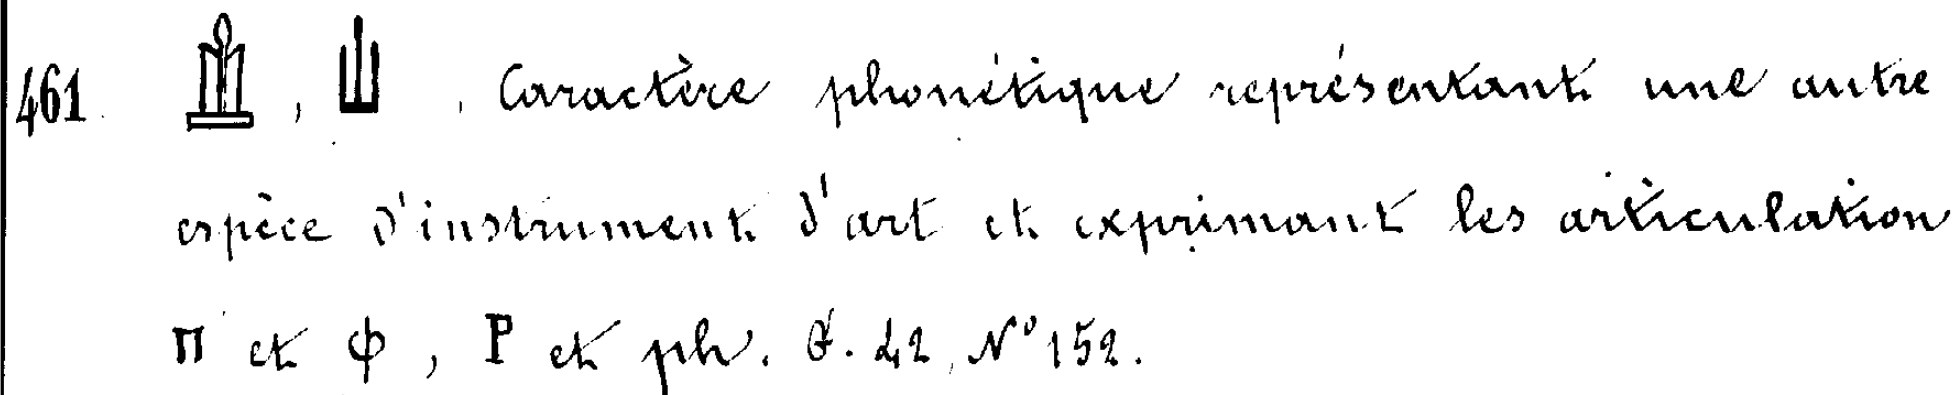 461. , . Caractère phonétique représentant une autre
espèce d'instrument d'art et exprimant les articulation
Π et Φ, P et ph. G. 42, N° 152.